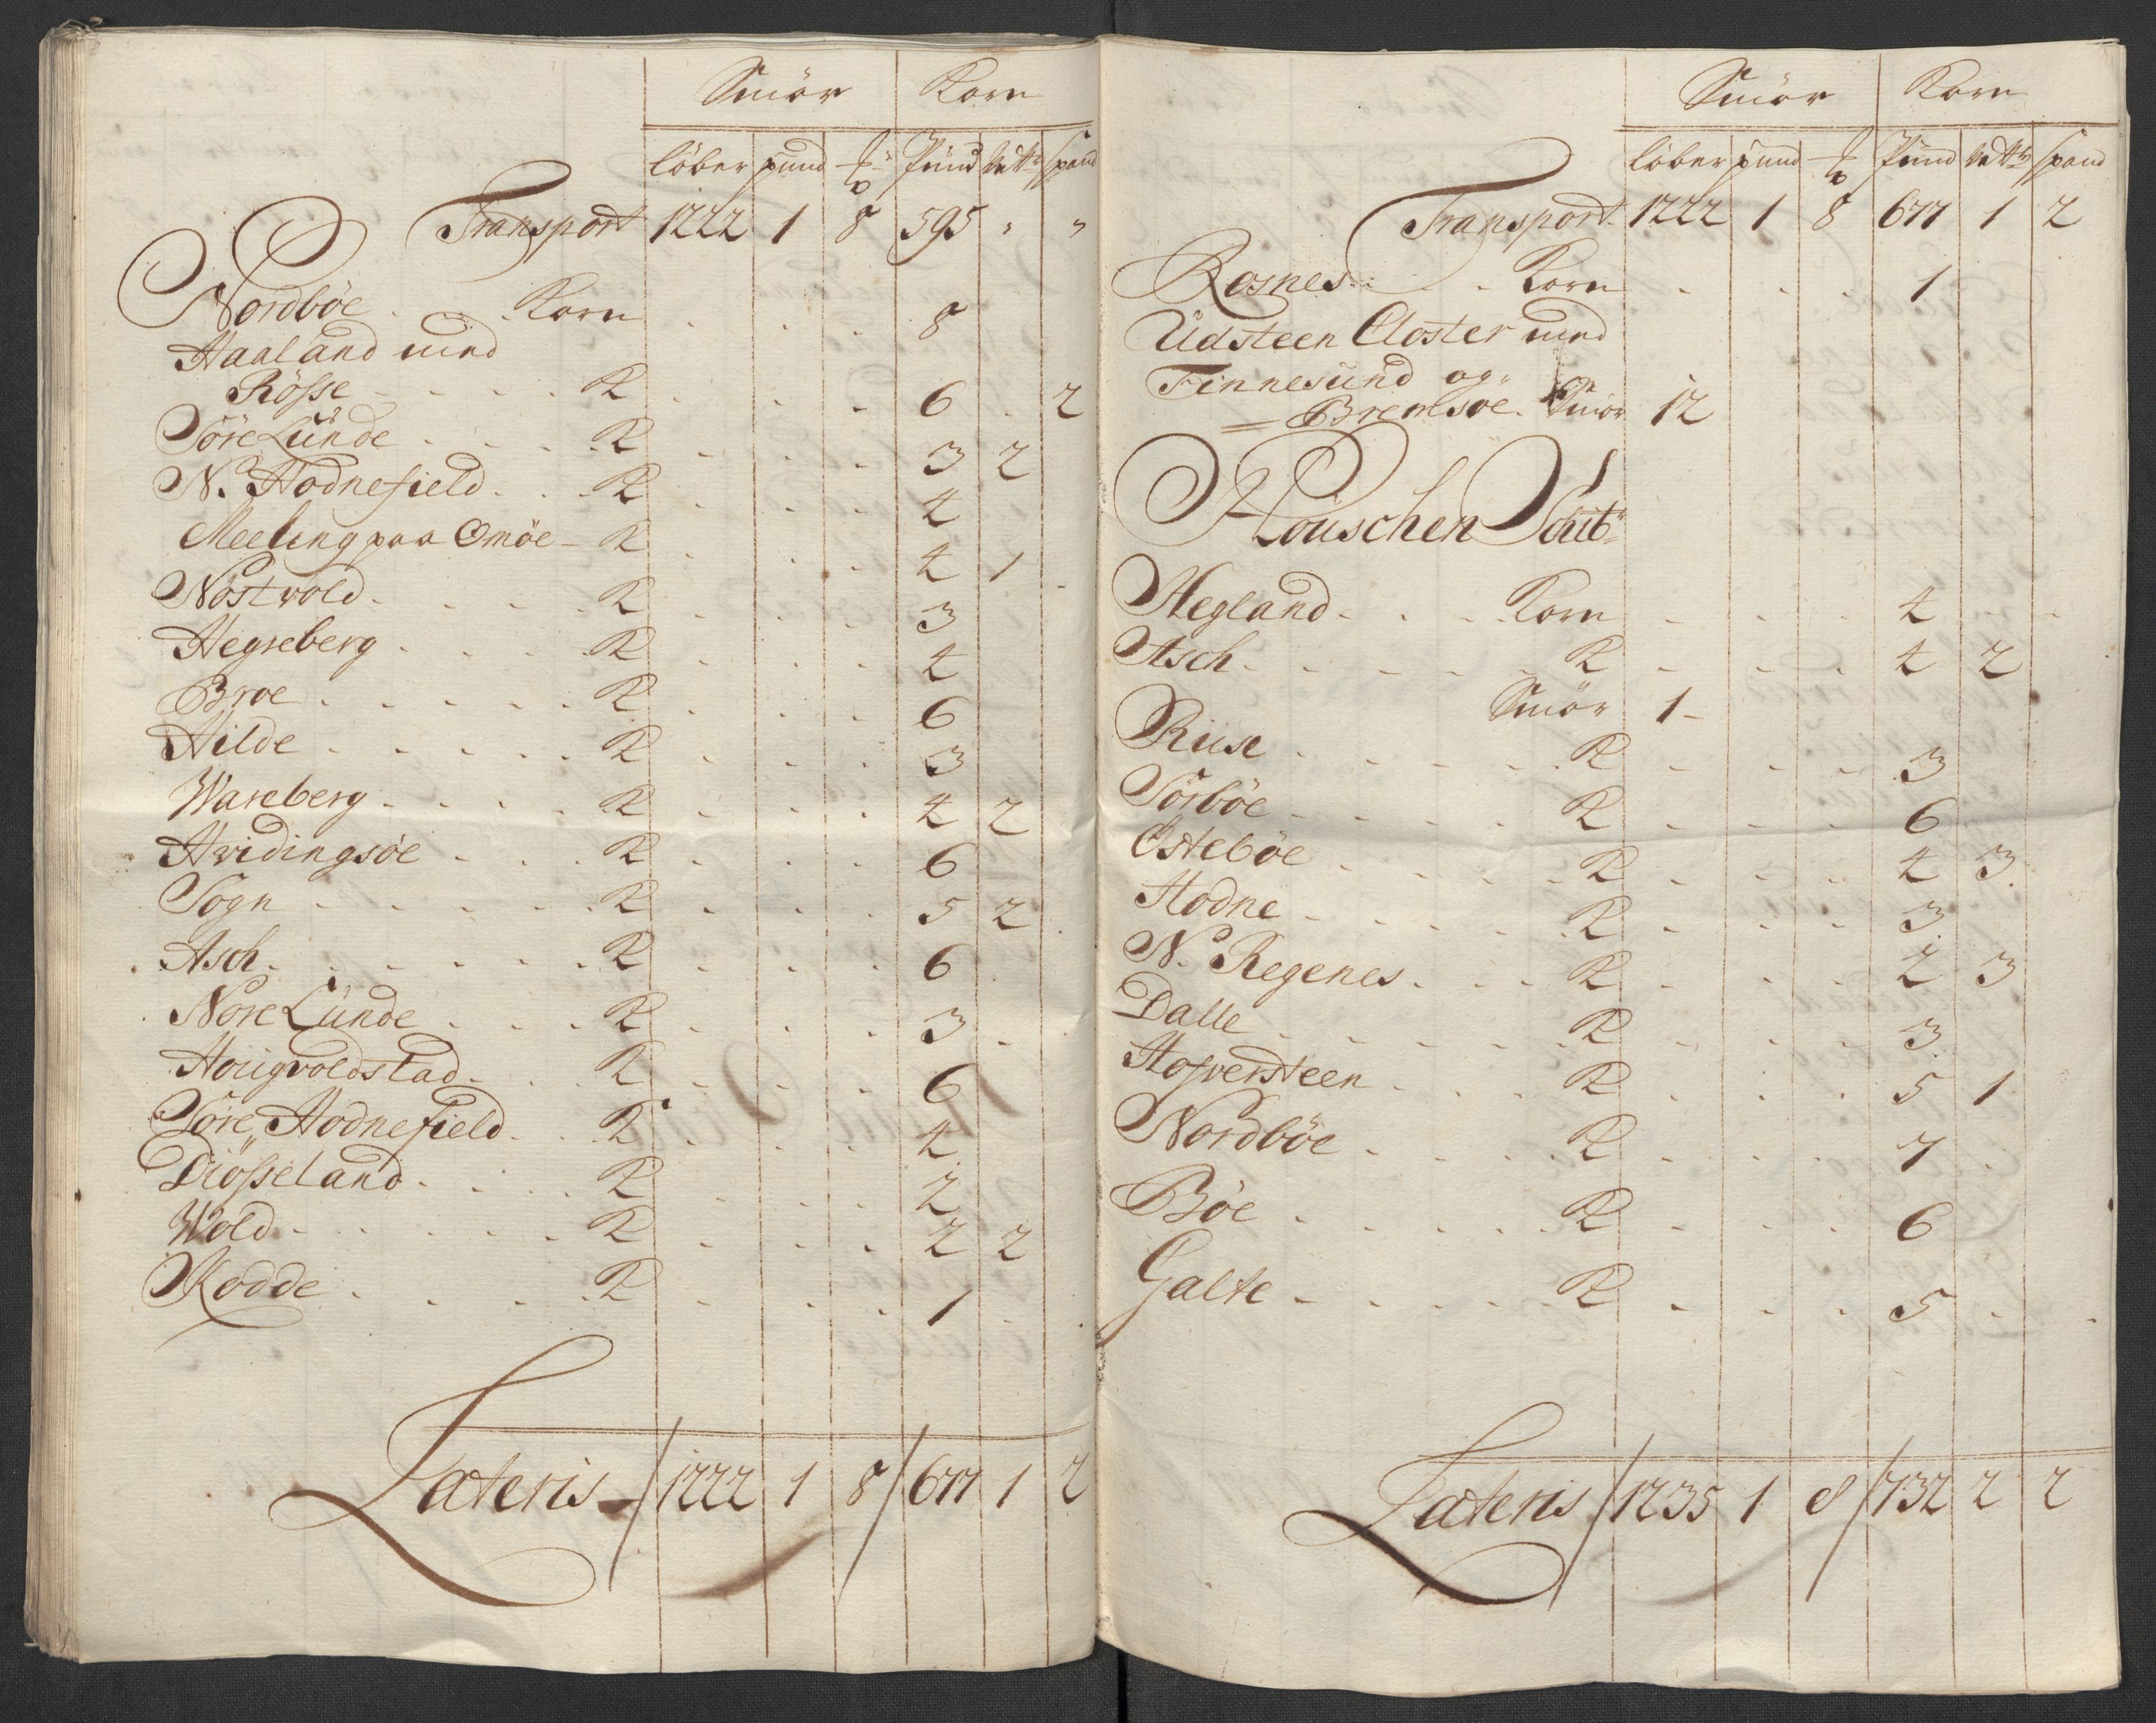 Smör Korn
löber pund ℔ Pund Vett: spand
Transport 1222 1 8 595 " "
Nordböe . . . Korn . . . 8
Haaland med
Rösse . . . . K . . . 6 . 2
Söre Lunde . . . K . . . 3 2
N. Hodnefield . . . K . . . 4
Meeling paa Omöe – K . . . 4 1 -
Nöstvold . . . . K . . . 3
Hegreberg . . . . K . . . 4
Broe . . . . . K . . . 6
Hilde . . . . . K . . . 3
Wareberg . . . . K . . . 4 2
Hvidingsöe . . . K . . . 6
Sogn . . . . . K . . . 5 2
Asch . . . . . K . . . 6
Nore Lunde . . . K . . . 3 .
Hougvoldstad . . . K . . . 6
Söre Hodnefield . . K . . . 4
Diösseland . . . . K . . . 2
Wold . . . . . K . . . 2 2
Kodde . . . . K . . . 1
Lateris / 1222 1 8 / 677 1 2
Smör Korn
löber pund ℔ Pund Vett: spand
Transport 1222 1 8 677 1 2
Rosnes . . . Korn . . . 1
Udsteen Closter med
Finnesund og
= Bremsöe . Smör 12
Houschen Schib:
Hegland . . . Korn . . . 4
Asch . . . . . K . . . 4 2
Smör 1 -
Riise . . . . . K . . . 3
Sörböe . . . . K . . . 6
Östeböe . . . . K . . . 4 3
Hodne . . . . . K . . . 3
N. Regenes . . . K . . . 2 3
Dalle . . . . . K . . . 3
Hofversteen . . . K . . . 5 1
Nordböe . . . . K . . . 7
Böe . . . . . K . . . 6
Galte . . . . . K . . . 5 . -
Lateris / 1235 1 8 / 732 2 2